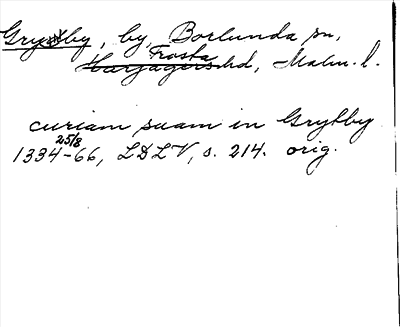 Grytby, by, Borlunda sn,
Frosta
Harjagers hd, Malm. l.
curiam suam in Grytby
25/8
1334-66, LDLV, s. 214. orig.